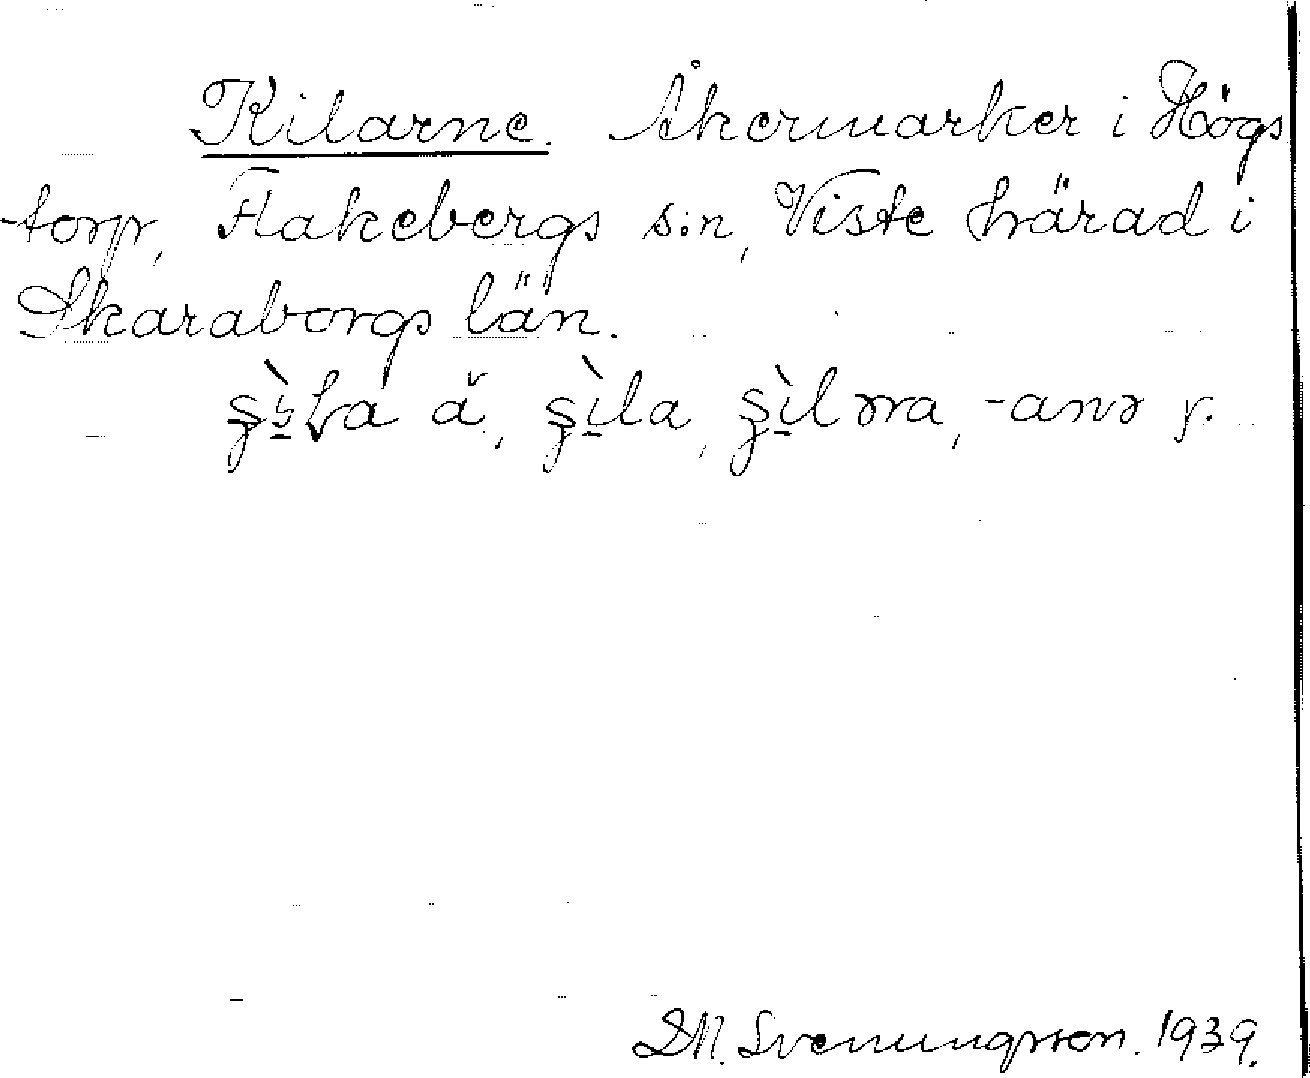 Kilarne. Åkermarker i Högs
-torp, Flakebergs s:n, Viste härad i
Skaraborgs län.
ʂìLa ä, ʂìla, ʂìlərna, -anə y.
D.M. Svenungsson. 1939.